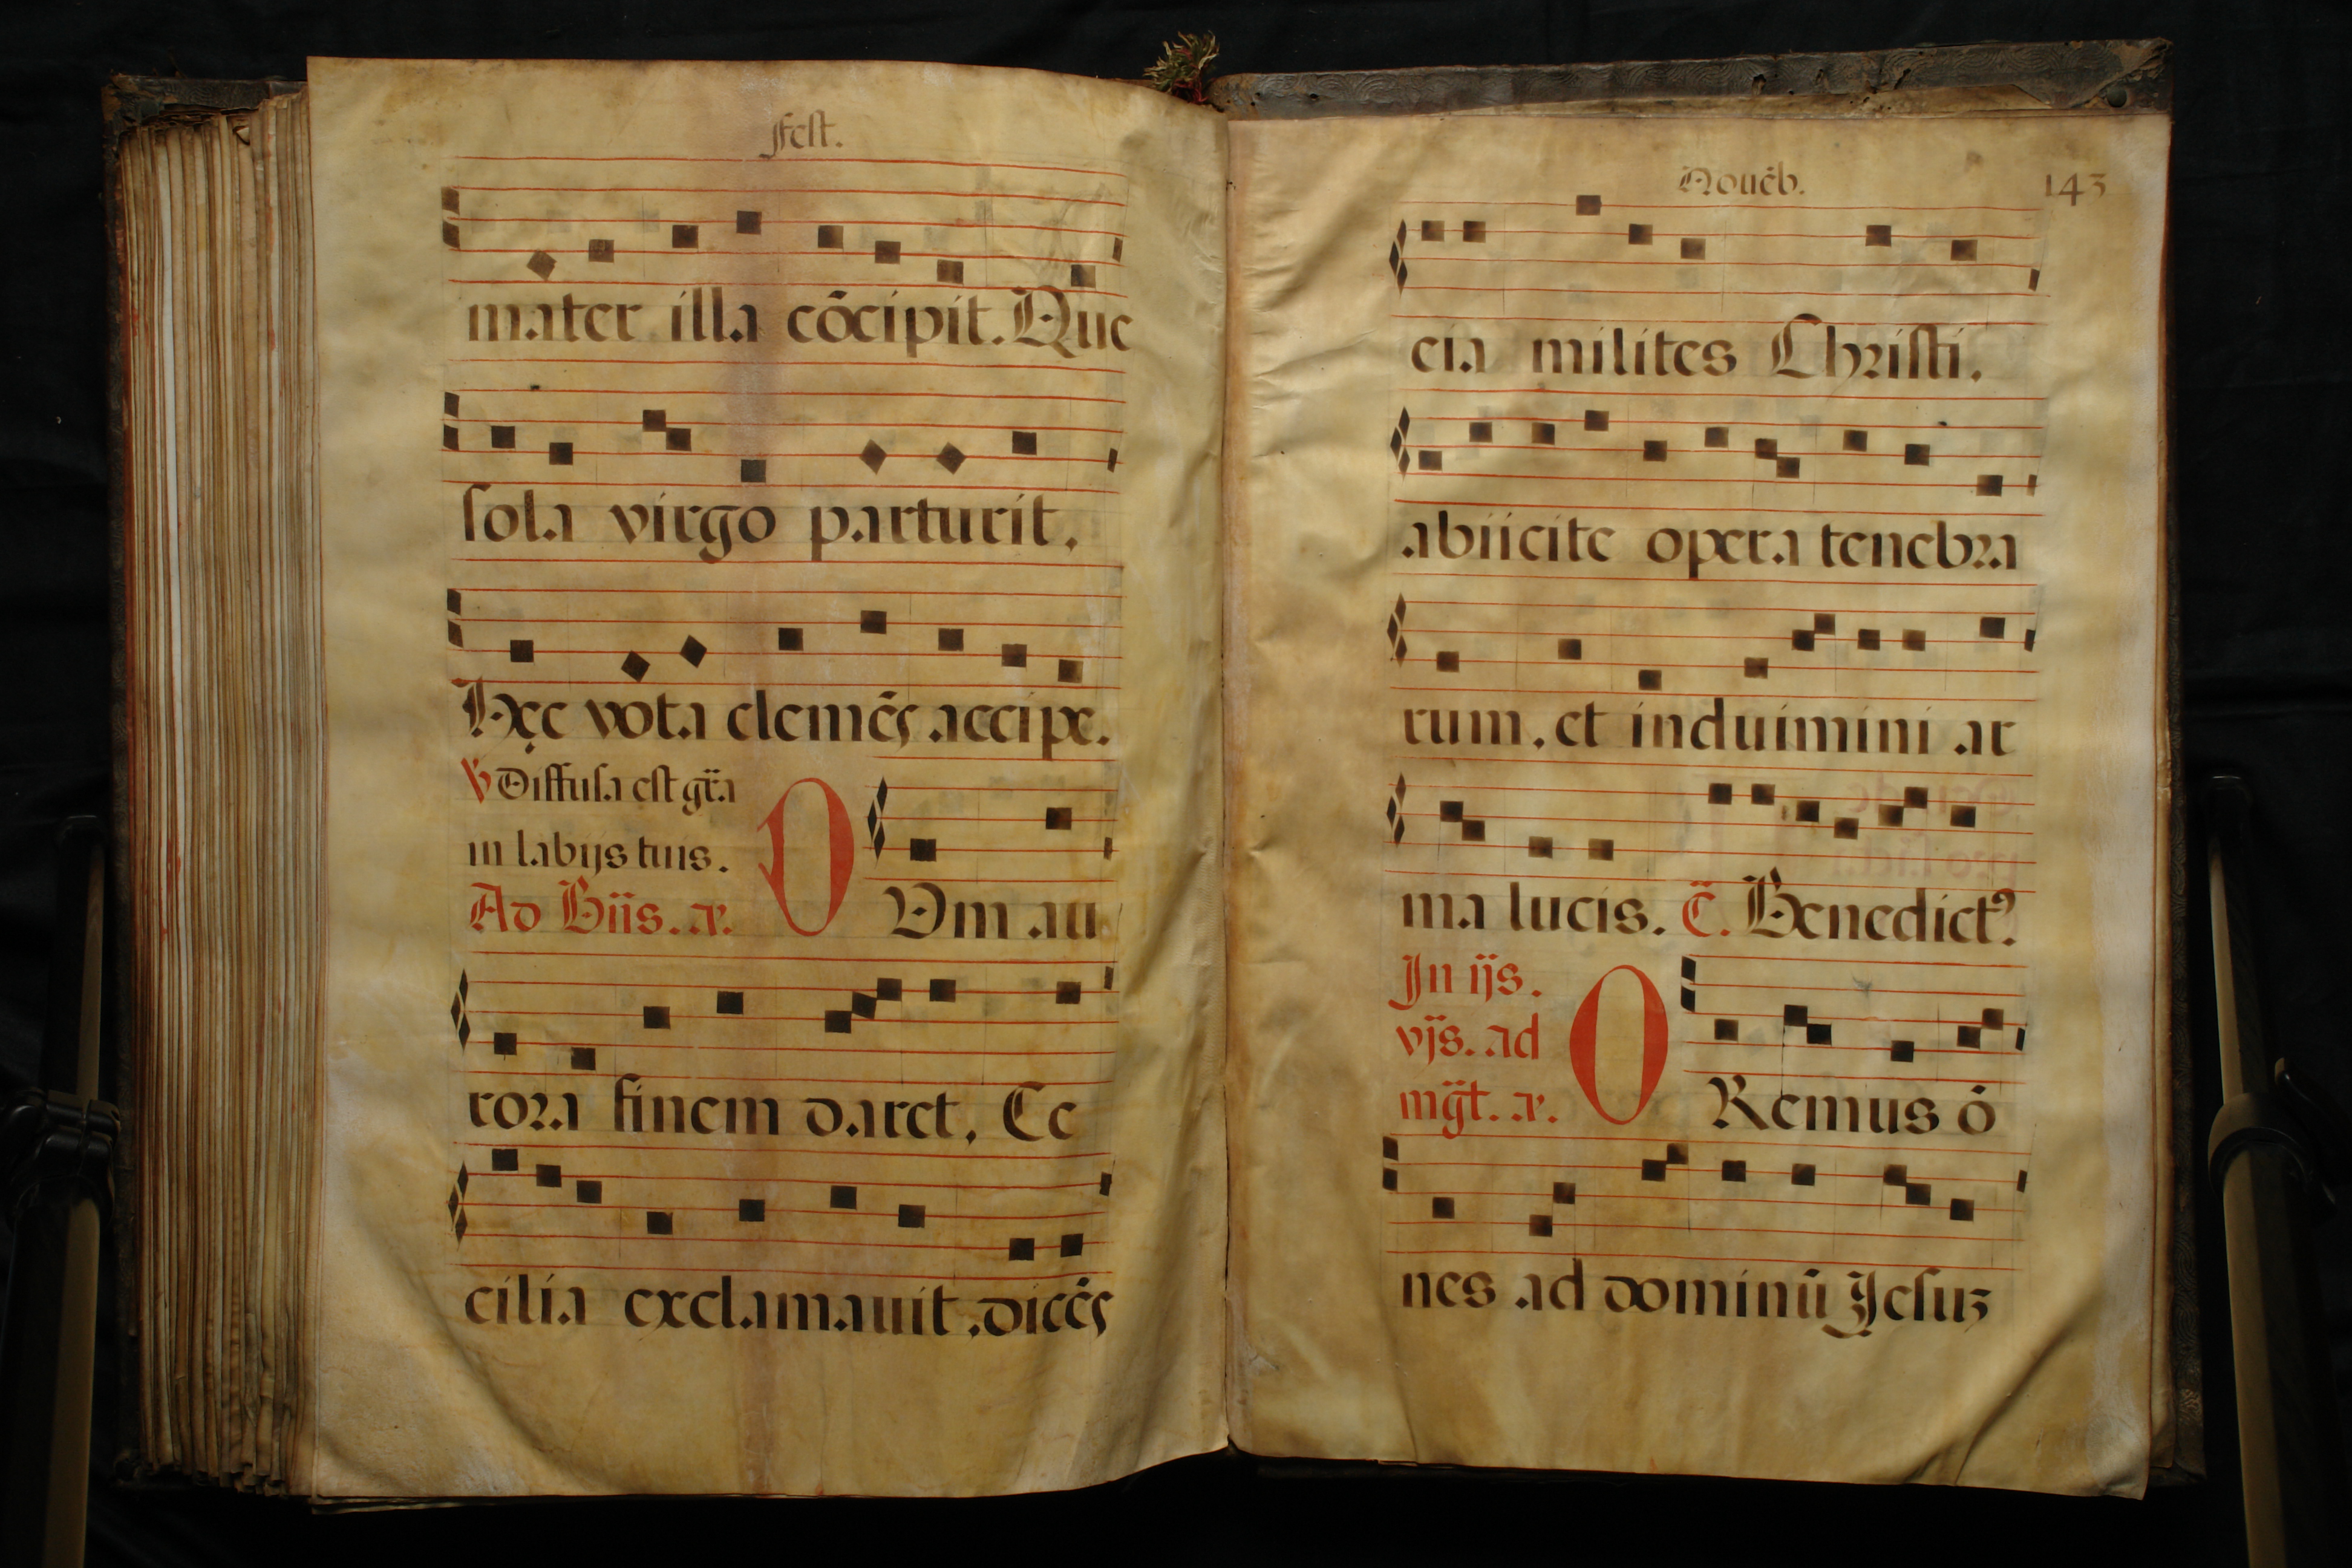 fest.
mater illa cōcipit. Que
sola virgo parturit.
Hęc vota clemēs accipe.
℣ Diffusa est gr̄a
in labijs tuis.
Ad Bn̄s. a.
O
Um au
rora finem daret, Ce
cilia exclamauit dicēs
Nouēb.
143
cia milites Christi,
abiicite opera tenebra
rum, et induimini ar
ma lucis. C̄. Benedictꝰ
In ijs.
vjs. ad
mḡt. a.
O
Remus ō
nes ad dominū Jesuz